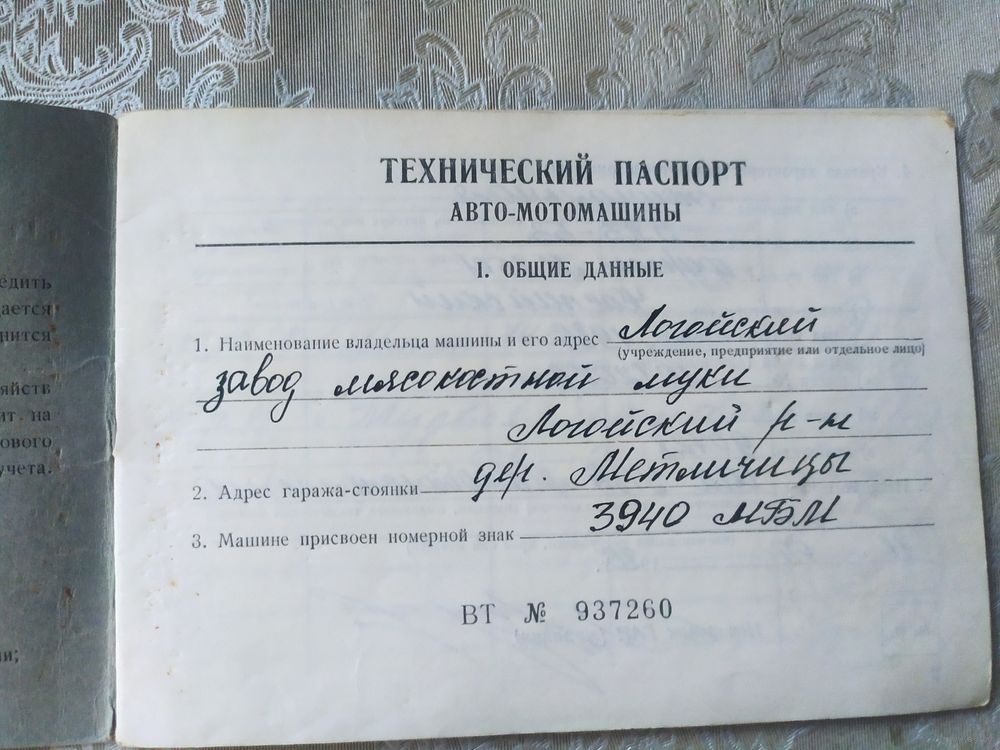 ТЕХНИЧЕСКИЙ ПАСПОРТ
АВТО-МОТОМАШИНЫ
I. ОБЩИЕ ДАННЫЕ
1. Наименование владельца машины и его адрес Логойский
(учреждение, предприятие или отдельное лицо)
завод мясокостной муки
Логойский р-н
2. Адрес гаража-стоянки дер. Метличицы
3. Машине присвоен номерной знак 3940 МБМ
ВТ № 937260
едить
дается
нится
яйств
ит на
ового
учета.
ии;